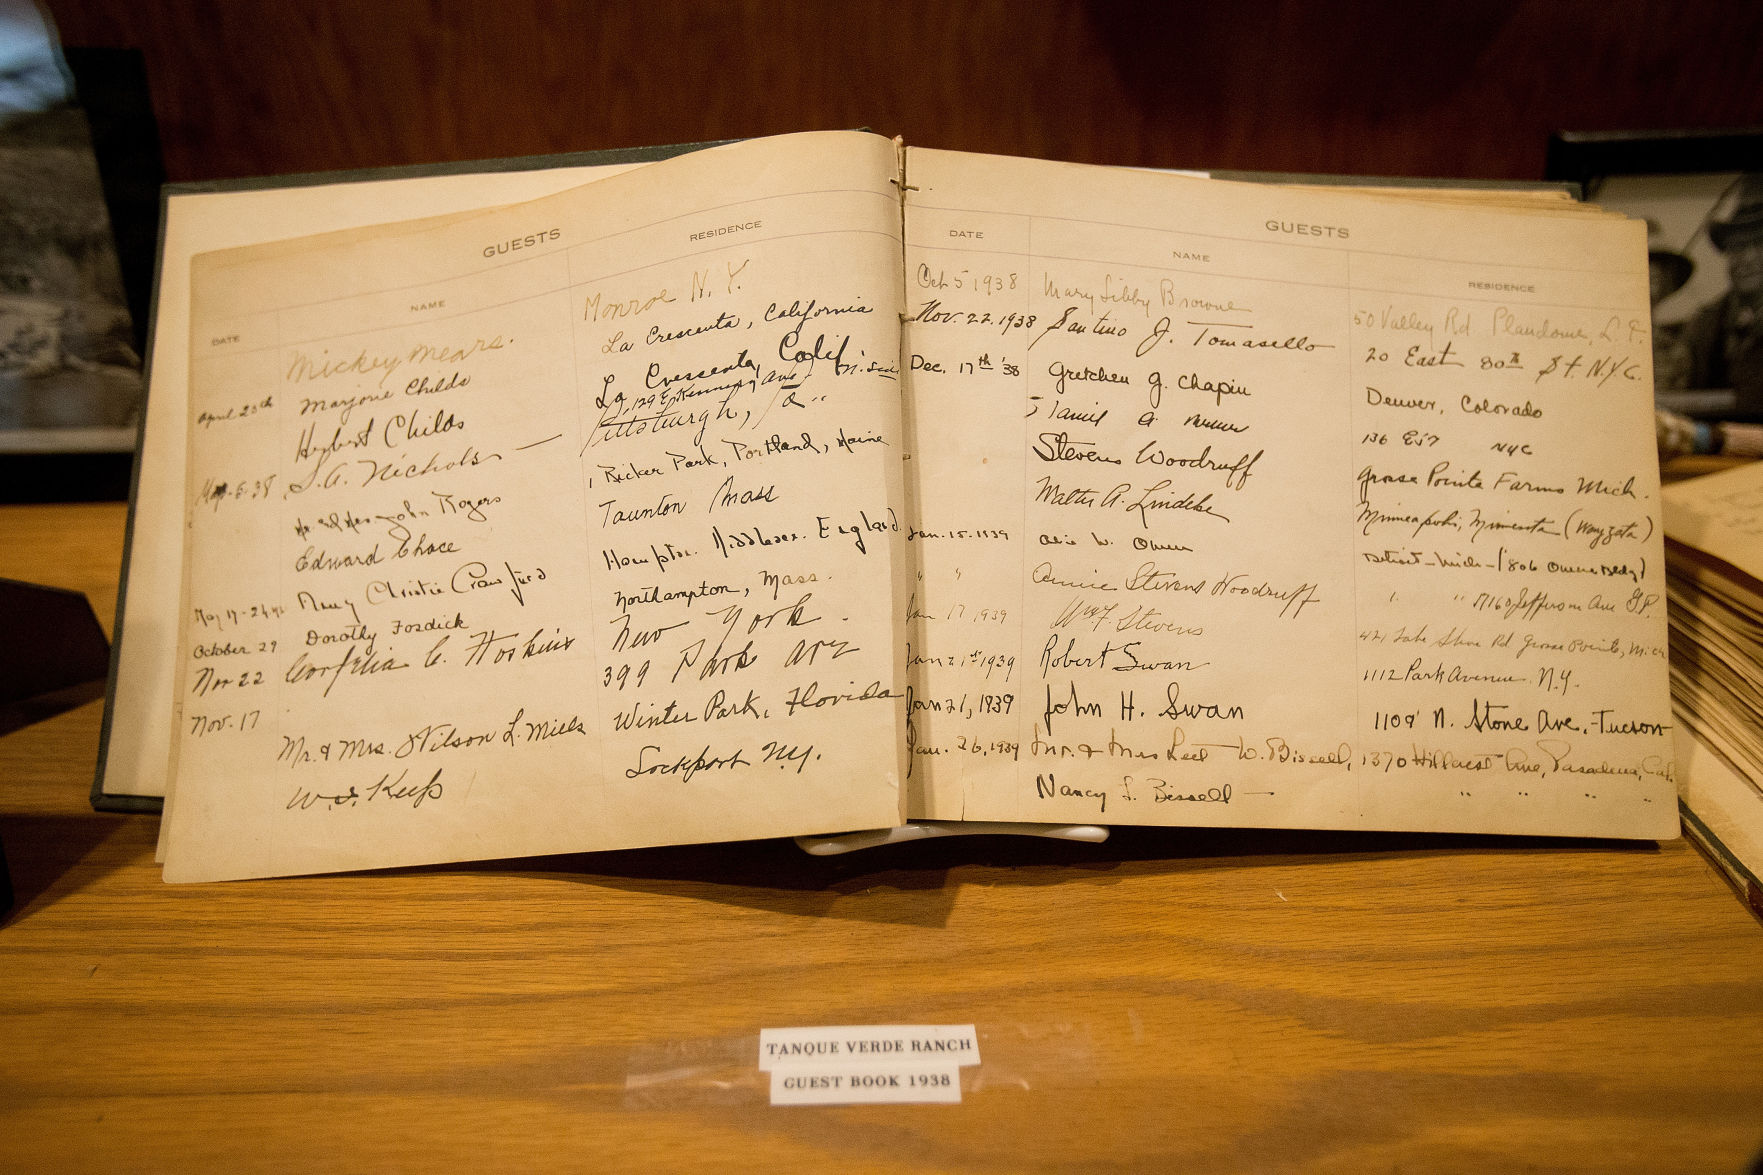 GUESTS
DATE NAME RESIDENCE
Mickey Mears. Monroe N.Y.
April 25th Marjorie Childs La Crescenta, California
Herbert Childs La Crescenta, Calif
129 E. Kennedy Ave. N.
May-6-38 S.A. Nichols — Pittsburgh, Pa.
Mr. & Mrs. John Rogers Ricker Park, Portland, Maine
Edward Chace Taunton Mass
May 17-24 Christie Crawfurd Hampton. Middlesex. England
October 29 Dorothy Fosdick Northampton, Mass.
Nov 22 Cornelia C. Hoskins New York.
Nov. 17 399 Park Ave
Mr. & Mrs. Wilson L. Mills Winter Park, Florida
Lockport N.Y.
GUESTS
DATE NAME RESIDENCE
Oct 5 1938 Mary Libby Browne 50 Valley Rd Plandome, L. I.
Nov. 22. 1938 Santino J. Tomasello 20 East 80th St. N.Y.C.
Dec. 17th '38 Gretchen G. Chapin Denver, Colorado
136 E 57 NYC
Stevens Woodruff Grosse Pointe Farms Mich.
Walter A. Lindeke Minneapolis, Minnesota (Wayzata)
Jan. 15. 1939 W. Owen Detroit - Mich - (806 Owen Bldg)
" " Annie Stevens Woodruff " " 17160 Jefferson Ave G.P.
Jan 17 1939 Wm F. Stevens 421 Lake Shore Rd Grosse Pointe, Mich
Jan 21st 1939 Robert Swan 1112 Park Avenue. N.Y.
Jan 21, 1939 John H. Swan 1109 N. Stone Ave,-Tucson
Jan. 26, 1939 Mr. & Mrs W. Bissell, 1370 Hillcrest Ave, Pasadena, Cal.
Nancy L. Bissell — " " " "
TANQUE VERDE RANCH
GUEST BOOK 1938